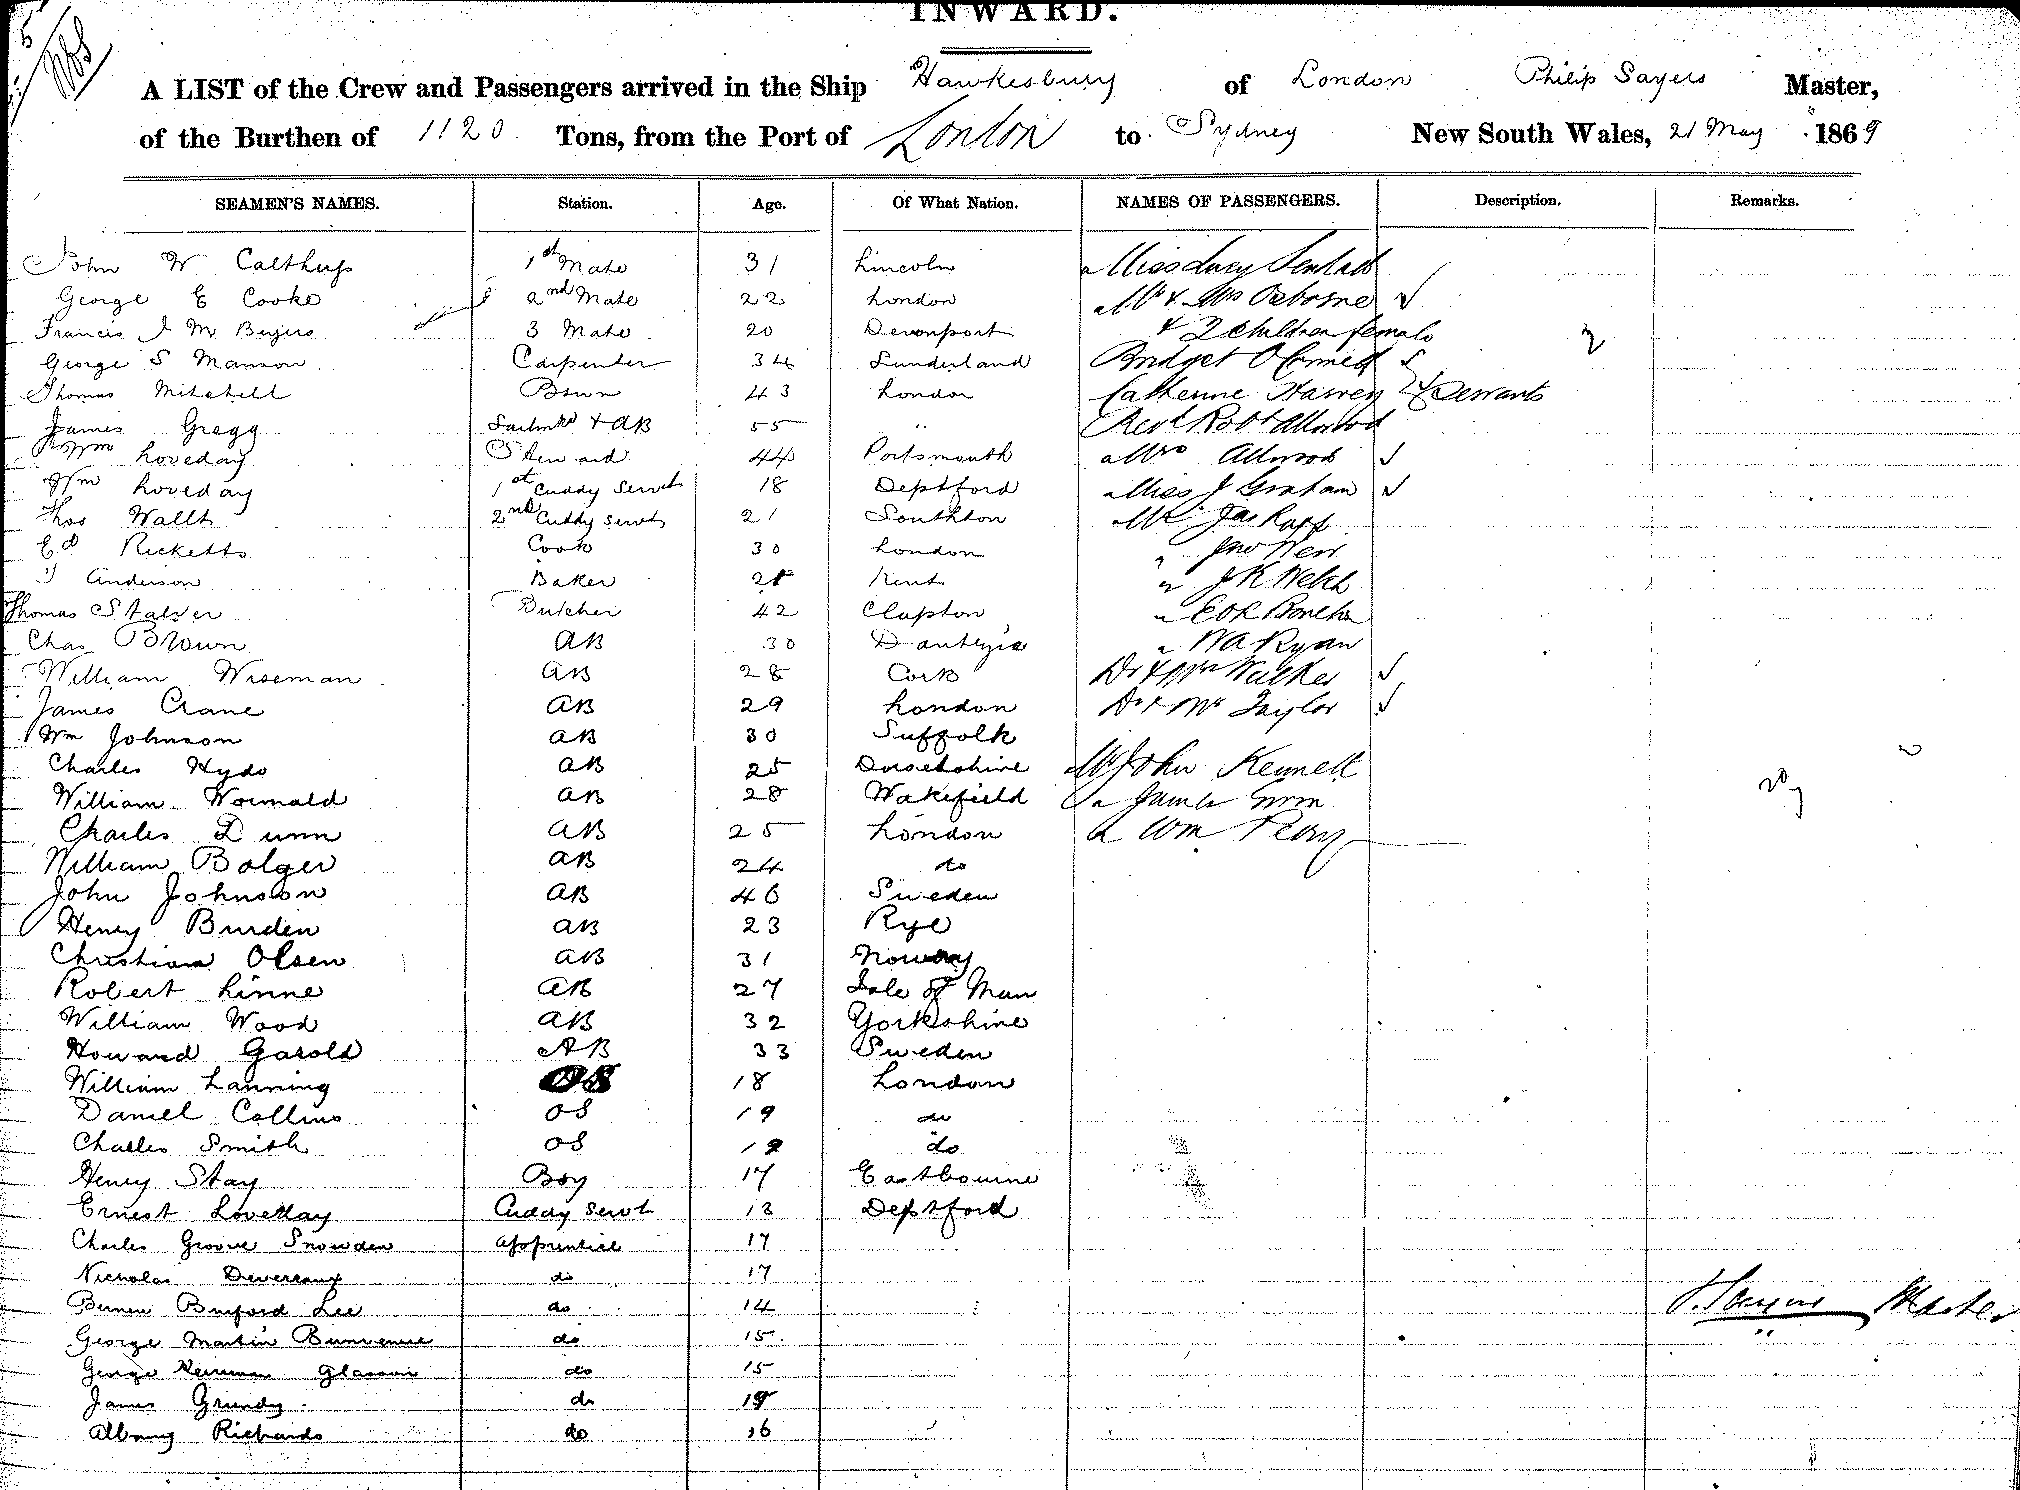 INWARD.
A LIST of the Crew and Passengers arrived in the Ship Hawkesbury of London Philip Sayers Master,
of the Burthen of 1120 Tons, from the Port of London to Sydney New South Wales, 21 May 1869
SEAMEN'S NAMES. Station. Age. Of What Nation. NAMES OF PASSENGERS. Description. Remarks.
John W Calthup 1st Mate 31 Lincoln Miss Lucy
George E Cooke 2nd Mate 22 London Mr & Mrs Osborne
Francis J 3 Mate 20 Devonport & 2 children female
George S Manson Carpenter 34 Sunderland Bridget O Connell
Thomas Mitchell Bosun 43 London Catherine Harvey Servants
James Gregg & AB 55 " Revd Robt Allwood
Wm Loveday Steward 44 Portsmouth Mrs Allwood
Wm Loveday 1st Cuddy Servt 18 Deptford Miss J Graham
Thos Wallt 2nd Cuddy Servt 21 Southton Mr Jas Rapp
Ed Ricketts Cook 30 London
Anderson Baker 21 Kent " J K Welch
Thomas Stalver Butcher 42 Clapton
Chas Brown AB 30 " W A Ryan
William Wiseman AB 28 Cork Dr & Mrs Walker
James Crane AB 29 London Dr & Mrs Taylor
Wm Johnson AB 30 Suffolk
Charles Hyde AB 25 Dorsetshire Mr John Kennett
William Wormald AB 28 Wakefield
Charles Dunn AB 25 London " Wm Perry
William Bolger AB 24 do
John Johnson AB 46 Sweden
Henry Burden AB 23 Rye
Christian Olsen AB 31 Norway
Robert Linne AB 27 Isle of Man
William Wood AB 32 Yorkshire
Howard Garold AB 33 Sweden
William Lanning OS 18 London
Daniel Collins OS 19 do
Charles Smith OS 19 do
Henry Stay Boy 17 Eastbourne
Ernest Loveday Cuddy Servt 13 Deptford
Charles Groove Snowden apprentice 17
Nicholas Devereaux do 17
Burford Lee do 14 P. Sayers Master
George Martin do 15
George Glasson do 15
James Grundy do
Albany Richards do 16